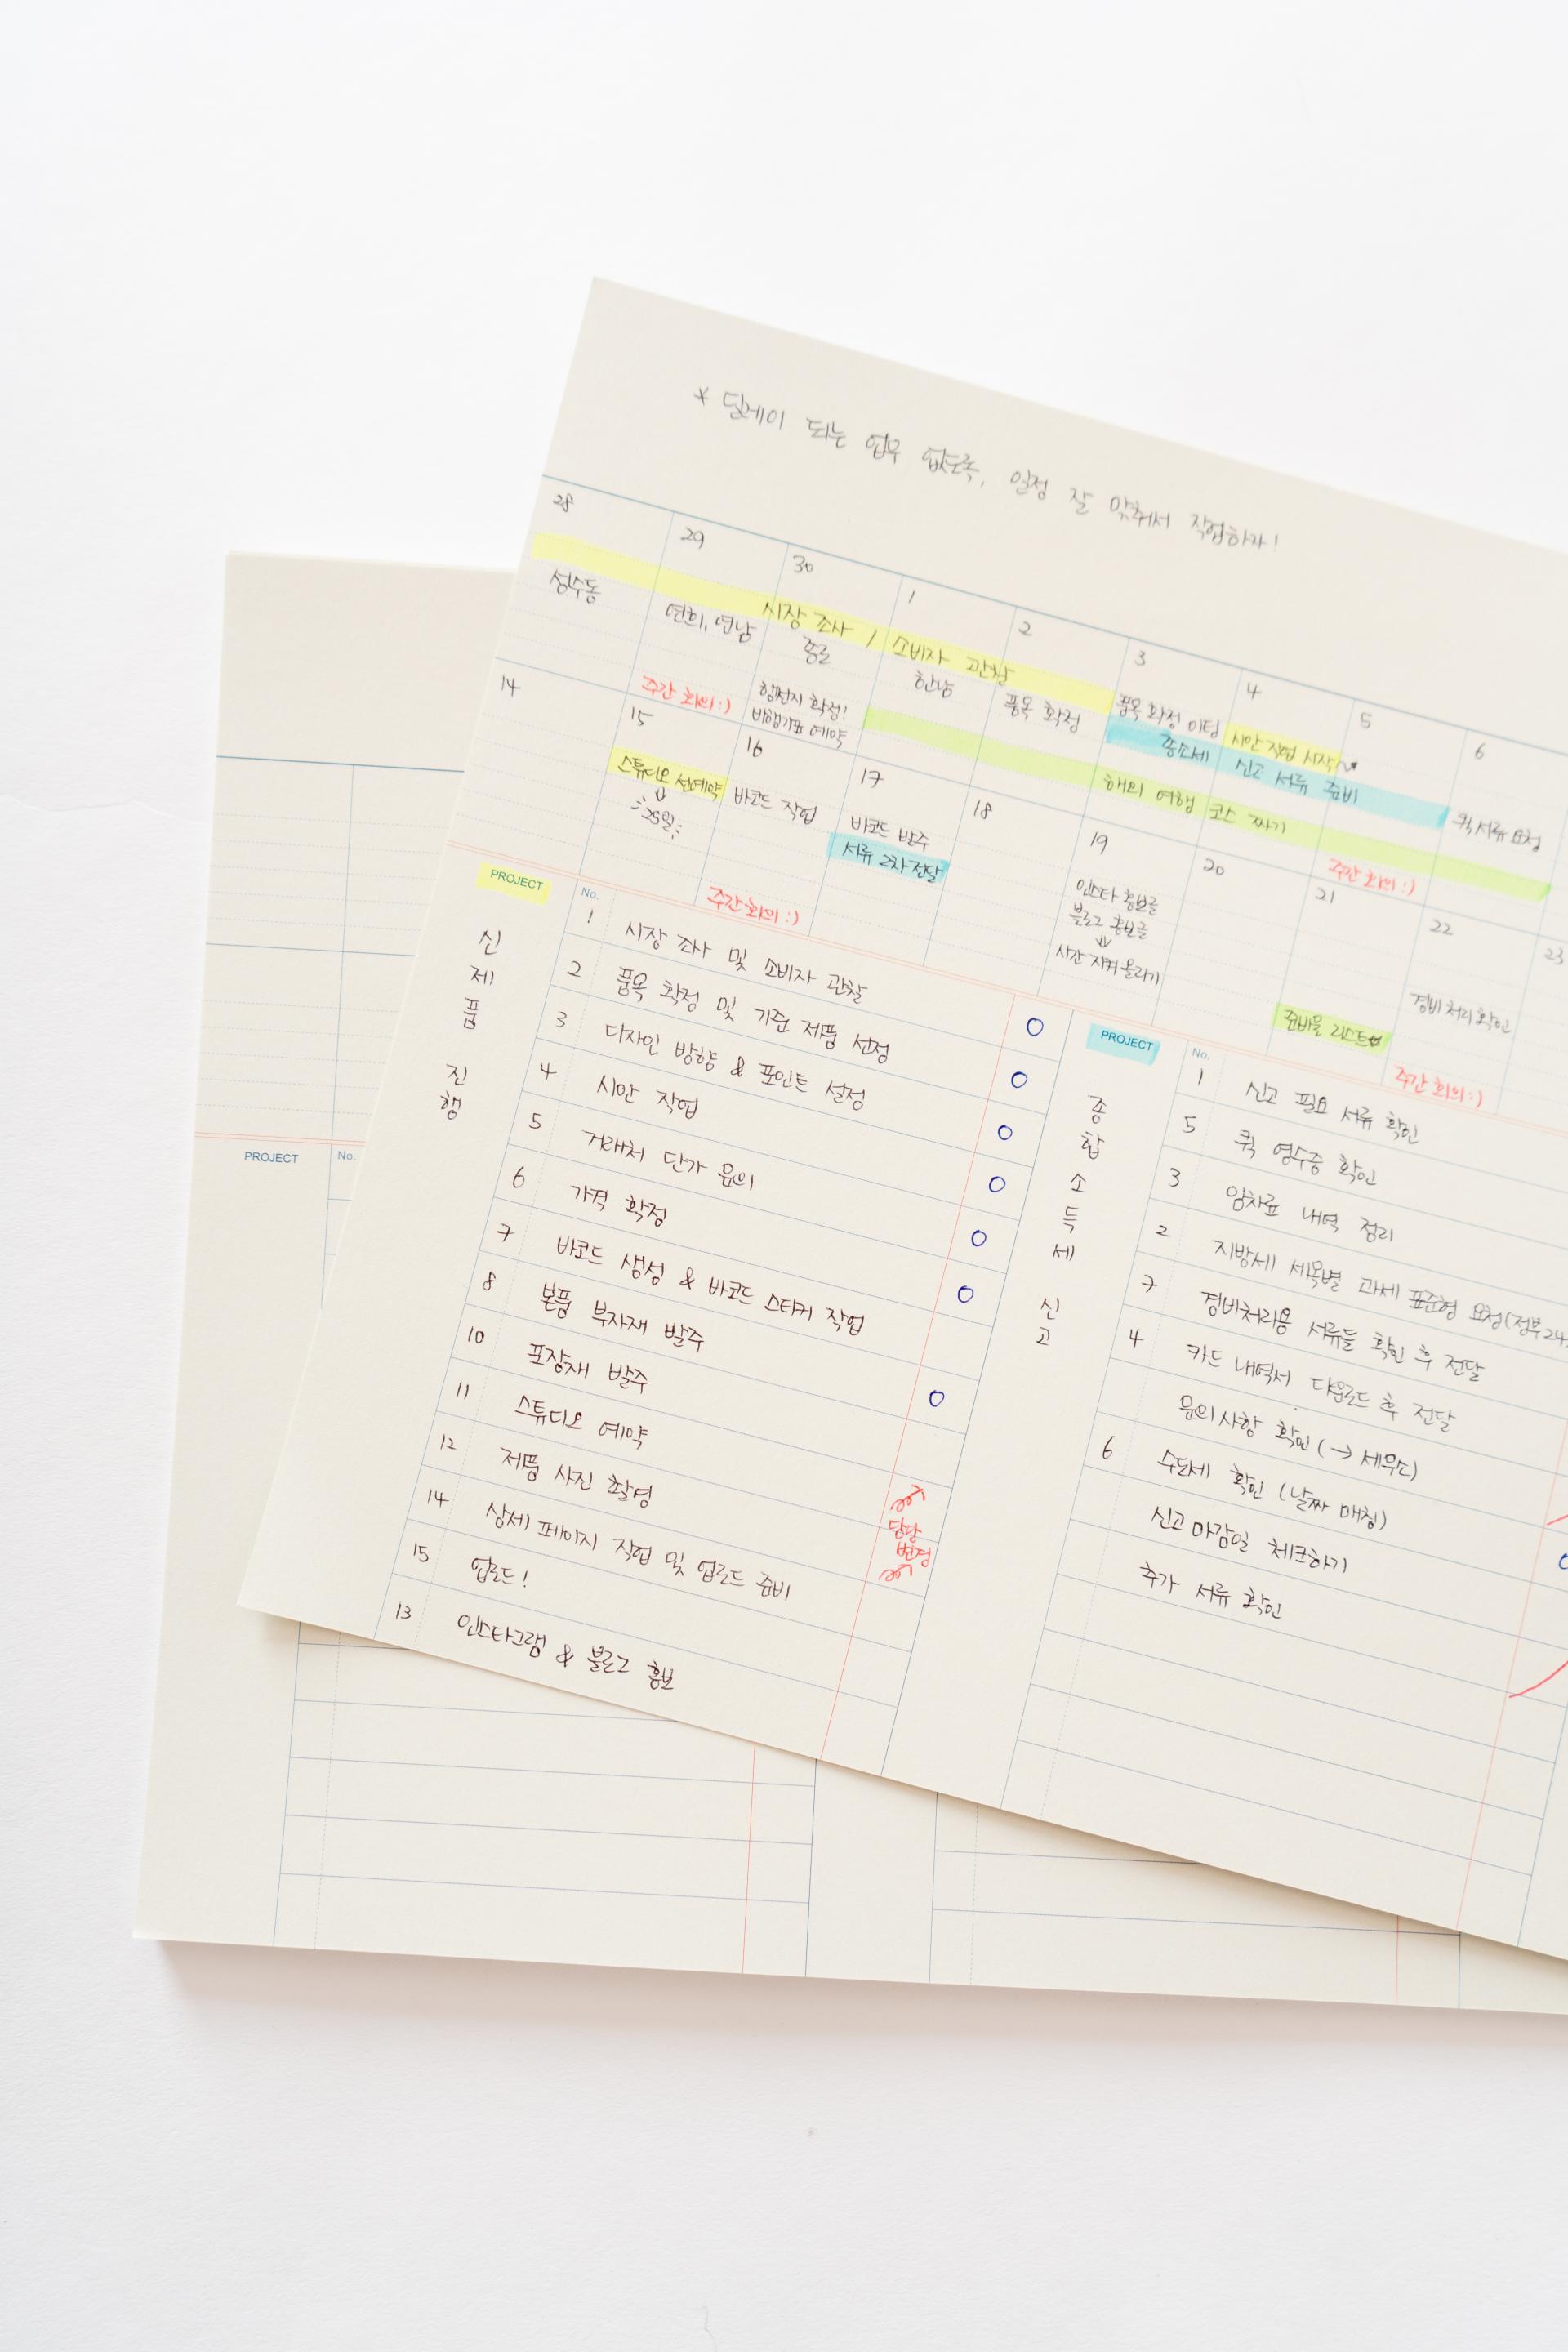 * 딜레이 되는 업무 없도록, 일정 잘 맞춰서 작업하자!
28
29
30
1
2
3
4
5
6
시장 조사 / 소비자 관찰
성수동
연희, 연남
종로
한남
품목 확정
품목 확정 미팅
시안 작업 시작
주간 회의 :)
행선지 확정!
비행기표 예약
종소세 신고 서류 준비
퀵 서류 요청
해외 여행 코스 짜기
주간 회의 :)
14
15
16
17
18
19
20
21
22
23
스튜디오 선예약
25일
바코드 작업
바코드 발주
서류 2차 전달
인스타 홍보글
블로그 홍보글
시간 지켜 올리기
준비물 리스트
경비 처리 확인
주간 회의 :)
주간 회의 :)
PROJECT
신제품 진행
No.
1 시장 조사 및 소비자 관찰
2 품목 확정 및 기준 제품 선정
3 디자인 방향 & 포인트 설정
4 시안 작업
5 거래처 단가 문의
6 가격 확정
7 바코드 생성 & 바코드 스티커 작업
8 본품 부자재 발주
10 포장재 발주
11 스튜디오 예약
12 제품 사진 촬영
14 상세 페이지 작업 및 업로드 준비
15 업로드!
13 인스타그램 & 블로그 홍보
담당
변경
PROJECT
종합소득세 신고
No.
1 신고 필요 서류 확인
5 퀵 영수증 확인
3 임차료 내역 정리
2 지방세 세목별 과세 표준형 요청 (정부24
7 경비처리용 서류들 확인 후 전달
4 카드 내역서 다운로드 후 전달
문의사항 확인 (→ 세무소)
6 수도세 확인 (날짜 매칭)
신고 마감일 체크하기
추가 서류 확인
PROJECT
No.